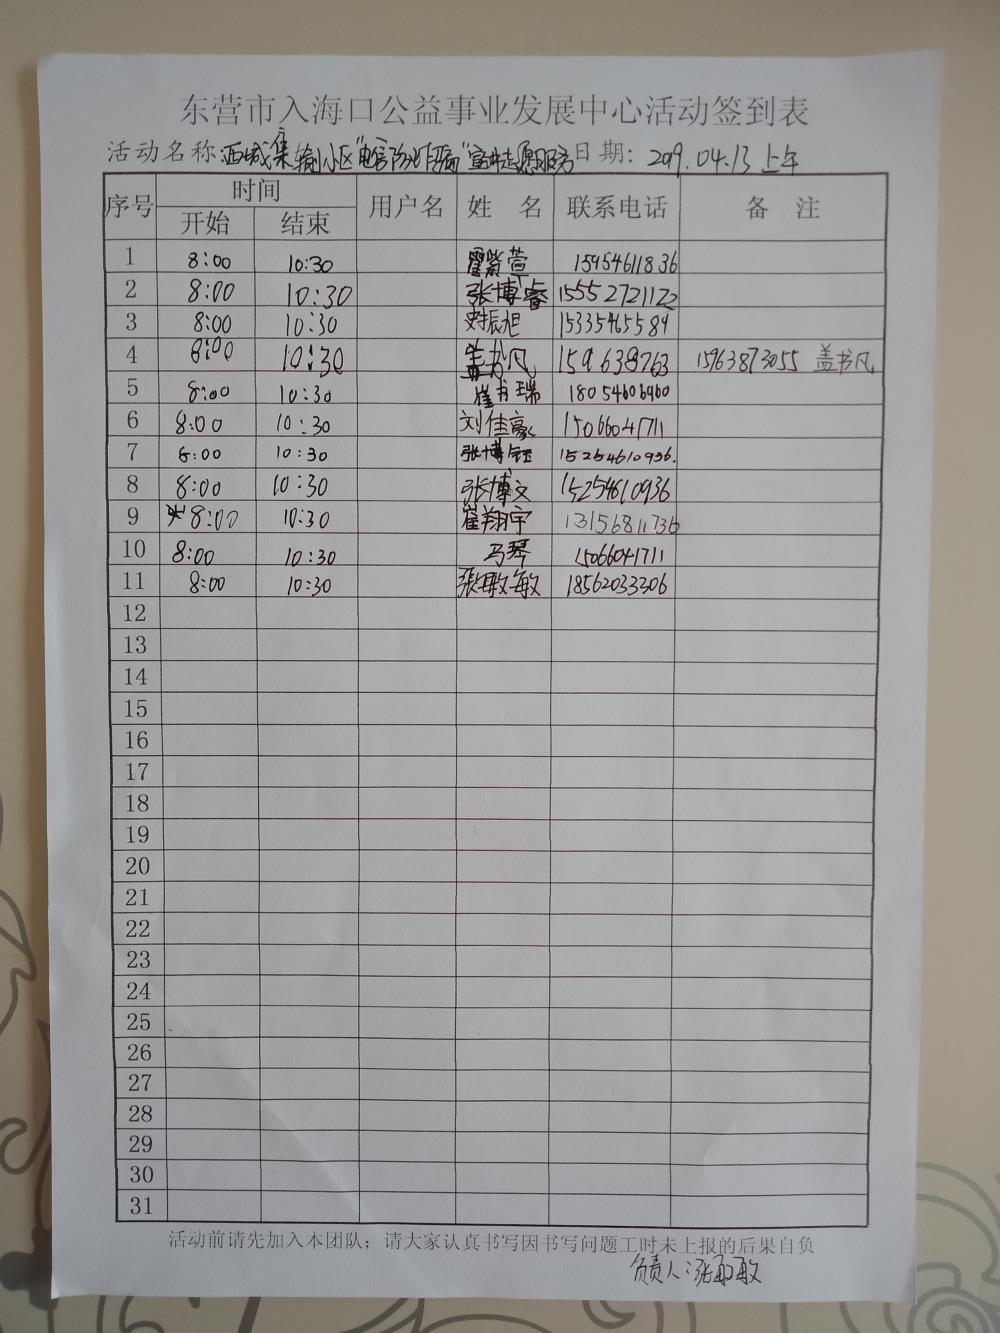 东营市入海口公益事业发展中心活动签到表
活动名称:西城集输小区"电信防诈骗"宣讲志愿服务 日期: 2019.04.13 上午
序号 时间 用户名 姓 名 联系电话 备 注
开始 结束
1 8:00 10:30 霍紫萱 15954611836
2 8:00 10:30 张博睿 15552721122
3 8:00 10:30 史振旭 15335465584
4 8:00 10:30 盖书凡 159638763 15963873055 盖书凡
5 8:00 10:30 崔书瑞 18054606960
6 8:00 10:30 刘佳豪 15066041711
7 8:00 10:30 张博钰 15254610936.
8 8:00 10:30 张博文 15254610936
9 8:00 10:30 崔翔宇 13156811736
10 8:00 10:30 马琴 15066041711
11 8:00 10:30 张敏敏 18562033306
12
13
14
15
16
17
18
19
20
21
22
23
24
25
26
27
28
29
30
31
活动前请先加入本团队；请大家认真书写因书写问题工时未上报的后果自负
负责人:张敏敏